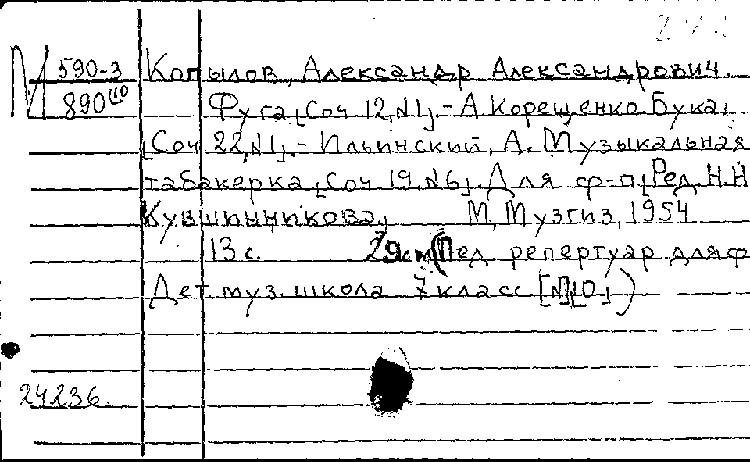 М 590-3
890(10
Копылов, Александр Александрович.
Фуга, [Соч 12, №1]. - А Корещенко Бука,
[Соч 22, №1]. - Ильинский, А. Музыкальная
табакерка, [Соч 19, №6]. Для ф-п, [Ред. Н.Н
Кувшинникова]
М, Музгиз, 1954
13 с. 29 см (Пед. репертуар для ф
Дет. муз. школа 7 класс [№] [10])
24236.